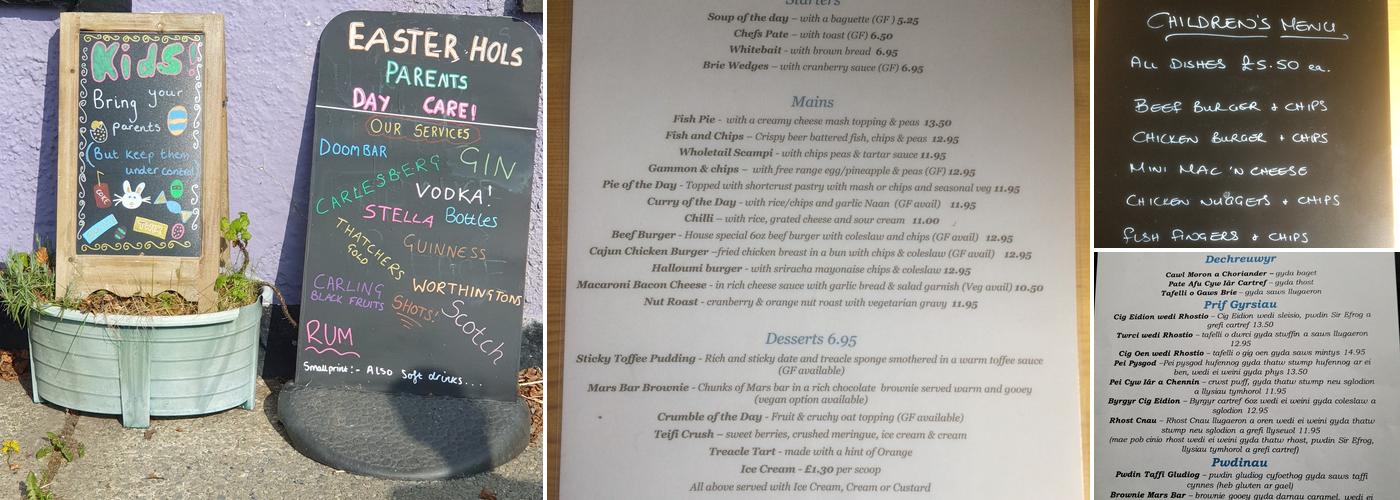 Kids!
Bring your
parents
(But keep them
under control)
EASTER HOLS
PARENTS
DAY CARE!
OUR SERVICES
DOOMBAR
GIN
CARLESBERG
VODKA!
STELLA
Bottles
THATCHERS
GOLD
GUINNESS
CARLING
BLACK FRUITS
WORTHINGTONS
SHOTS!
Scotch
RUM
Smallprint:- Also Soft drinks...
Starters
Soup of the day – with a baguette (GF ) 5.25
Chefs Pate – with toast (GF) 6.50
Whitebait - with brown bread 6.95
Brie Wedges – with cranberry sauce (GF) 6.95
Mains
Fish Pie - with a creamy cheese mash topping & peas 13.50
Fish and Chips – Crispy beer battered fish, chips & peas 12.95
Wholetail Scampi - with chips peas & tartar sauce 11.95
Gammon & chips – with free range egg/pineapple & peas (GF) 12.95
Pie of the Day - Topped with shortcrust pastry with mash or chips and seasonal veg 11.95
Curry of the Day - with rice/chips and garlic Naan (GF avail) 11.95
Chilli – with rice, grated cheese and sour cream 11.00
Beef Burger - House special 6oz beef burger with coleslaw and chips (GF avail) 12.95
Cajun Chicken Burger –fried chicken breast in a bun with chips & coleslaw (GF avail) 12.95
Halloumi burger - with sriracha mayonaise chips & coleslaw 12.95
Macaroni Bacon Cheese - in rich cheese sauce with garlic bread & salad garnish (Veg avail) 10.50
Nut Roast - cranberry & orange nut roast with vegetarian gravy 11.95
Desserts 6.95
Sticky Toffee Pudding - Rich and sticky date and treacle sponge smothered in a warm toffee sauce
(GF available)
Mars Bar Brownie - Chunks of Mars bar in a rich chocolate brownie served warm and gooey
(vegan option available)
Crumble of the Day - Fruit & cruchy oat topping (GF available)
Teifi Crush – sweet berries, crushed meringue, ice cream & cream
Treacle Tart - made with a hint of Orange
Ice Cream - £1.30 per scoop
All above served with Ice Cream, Cream or Custard
CHILDREN'S MENU
ALL DISHES £5.50 ea.
BEEF BURGER + CHIPS
CHICKEN BURGER + CHIPS
MINI MAC 'N CHEESE
CHICKEN NUGGETS + CHIPS
FISH FINGERS + CHIPS
Dechreuwyr
Cawl Moron a Choriander – gyda baget
Pate Afu Cyw Iâr Cartref – gyda thost
Tafelli o Gaws Brie – gyda saws llugaeron
Prif Gyrsiau
Cig Eidion wedi Rhostio - Cig Eidion wedi sleisio, pwdin Sir Efrog a
grefi cartref 13.50
Twrci wedi Rhostio – tafelli o dwrci gyda stuffin a saws llugaeron
12.95
Cig Oen wedi Rhostio – tafelli o gig oen gyda saws mintys 14.95
Pei Pysgod –Pei pysgod hufennog gyda thatw stump hufennog ar ei
ben, wedi ei weini gyda phys 13.50
Pei Cyw Iâr a Chennin – crwst pwff, gyda thatw stump neu sglodion
a llysiau tymhorol 11.95
Byrgyr Cig Eidion – Byrgyr cartref 6oz wedi ei weini gyda coleslaw a
sglodion 12.95
Rhost Cnau – Rhost Cnau llugaeron a oren wedi ei weini gyda thatw
stwmp neu sglodion a grefi llyseuol 11.95
(mae pob cinio rhost wedi ei weini gyda thatw rhost, pwdin Sir Efrog,
llysiau tymhorol a grefi cartref)
Pwdinau
Pwdin Taffi Gludiog – pwdin gludiog cyfoethog gyda saws taffi
cynnes (heb gluten ar gael)
Brownie Mars Bar – brownie gooey gyda darnau caramel, wedi ei